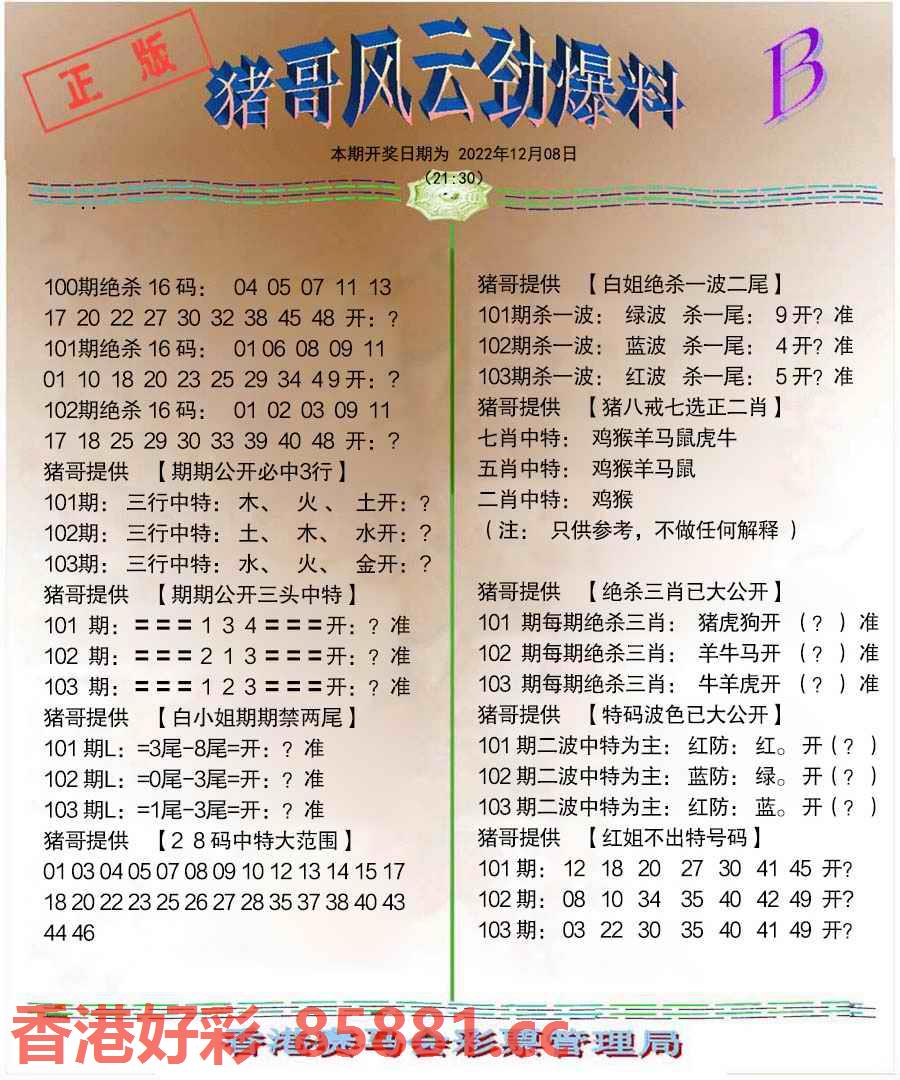 正版
猪哥风云劲爆料
B
本期开奖日期为 2022年12月08日
(21:30)
100期绝杀16码: 04 05 07 11 13
17 20 22 27 30 32 38 45 48 开:?
101期绝杀16码: 01 06 08 09 11
01 10 18 20 23 25 29 34 49开:?
102期绝杀16码: 01 02 03 09 11
17 18 25 29 30 33 39 40 48 开:?
猪哥提供 【期期公开必中3行】
101期: 三行中特: 木、 火、 土开:?
102期: 三行中特: 土、 木、 水开:?
103期: 三行中特: 水、 火、 金开:?
猪哥提供 【期期公开三头中特】
101 期: === 1 3 4 ===开:? 准
102 期: === 2 1 3 ===开:? 准
103 期: === 1 2 3 ===开:? 准
猪哥提供 【白小姐期期禁两尾】
101期L: =3尾-8尾=开:? 准
102期L: =0尾-3尾=开:? 准
103期L: =1尾-3尾=开:? 准
猪哥提供 【28码中特大范围】
01 03 04 05 07 08 09 10 12 13 14 15 17
18 20 22 23 25 26 27 28 35 37 38 40 43
44 46
猪哥提供 【白姐绝杀一波二尾】
101期杀一波: 绿波 杀一尾: 9开? 准
102期杀一波: 蓝波 杀一尾: 4开? 准
103期杀一波: 红波 杀一尾: 5开? 准
猪哥提供 【猪八戒七选正二肖】
七肖中特: 鸡猴羊马鼠虎牛
五肖中特: 鸡猴羊马鼠
二肖中特: 鸡猴
(注: 只供参考,不做任何解释)
猪哥提供 【绝杀三肖已大公开】
101 期每期绝杀三肖: 猪虎狗开 (?)准
102 期每期绝杀三肖: 羊牛马开 (?)准
103 期每期绝杀三肖: 牛羊虎开 (?)准
猪哥提供 【特码波色已大公开】
101期二波中特为主: 红防: 红。 开(?)
102期二波中特为主: 蓝防: 绿。 开(?)
103期二波中特为主: 红防: 蓝。 开(?)
猪哥提供 【红姐不出特号码】
101期: 12 18 20 27 30 41 45 开?
102期: 08 10 34 35 40 42 49 开?
103期: 03 22 30 35 40 41 49 开?
香港好彩 85881.cc
香港赛马会彩票管理局